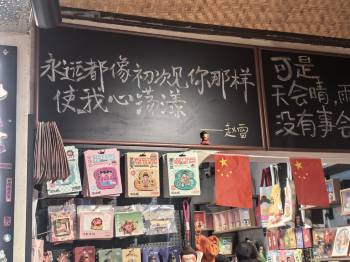 永远都像初次见你那样
使我心荡漾
——赵雷
可是
天会晴，雨
没有事会